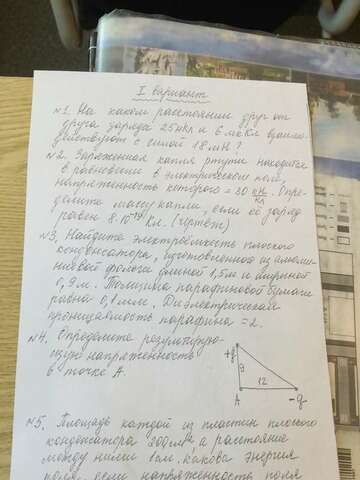 I вариант
№1. На каком расстоянии друг от
друга заряды 25нКл и 6 мкКл взаимо-
действуют с силой 18 мН?
№2. Заряженная капля ртути находится
в равновесии в электрическом поле,
напряженность которого = 30 кН/Кл. Опре-
делите массу капли, если её заряд
равен 8·10⁻¹⁹ Кл. (чертёж)
№3. Найдите электроёмкость плоского
конденсатора, изготовленного из алюми-
ниевой фольги длиной 1,5м и шириной
0,9 м. Толщина парафиновой бумаги
равна 0,1мм. Диэлектрическая
проницаемость парафина = 2.
№4. Определите результирую-
щую напряженность
в точке А
+q
9
12
А
-q
№5. Площадь каждой из пластин плоского
конденсатора 200 а расстояние
между ними 1см. Какова энергия
поля, если напряженность поля